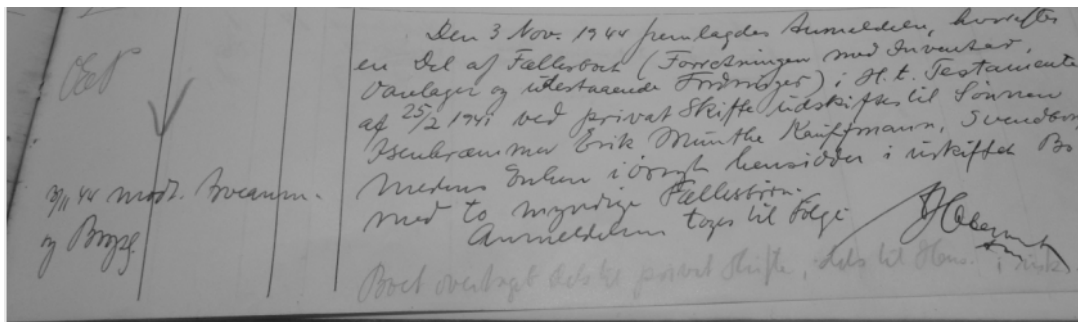 Den 3 Nov. 1944 fremlagdes Anmeldelse, hvorefter
en Del af Fællesboet (Forretningen med Inventar,
Varelager og udestaaende Fordringer) i H.t. Testamente
af 25/2 1941 ved privat Skifte udskiftes til Sønnen
Isenkræmmer Erik Münthe Kauffmann, Svendborg
medens Enken i øvrigt hensidder i uskiftet Bo
med to myndige Fællesbørn.
Anmeldelsen tages til Følge
Boet overtaget dels til privat Skifte, dels til Hens. i usk.
3/11 44 modt.
og